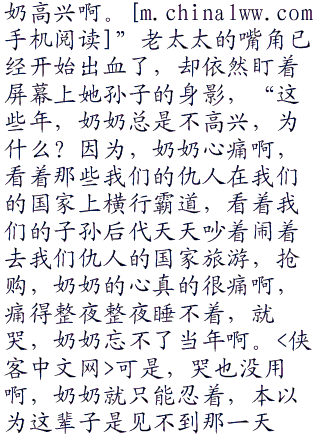 奶高兴啊。[m.chinalww.com
手机阅读]”老太太的嘴角已
经开始出血了，却依然盯着
屏幕上她孙子的身影，“这
些年，奶奶总是不高兴，为
什么？因为，奶奶心痛啊，
看着那些我们的仇人在我们
的国家上横行霸道，看着我
们的子孙后代天天吵着闹着
去我们仇人的国家旅游，抢
购，奶奶的心真的很痛啊，
痛得整夜整夜睡不着，就
哭，奶奶忘不了当年啊。<侠
客中文网>可是，哭也没用
啊，奶奶就只能忍着，本以
为这辈子是见不到那一天